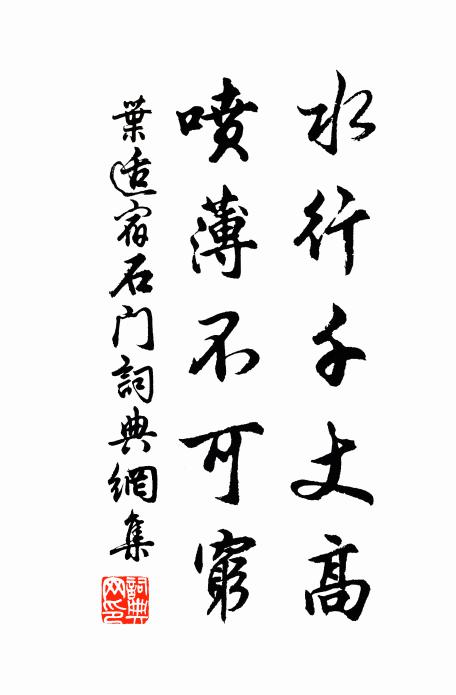 水行千丈高
噴薄不可窮
葉适宿石門詞典網集
詞典网印